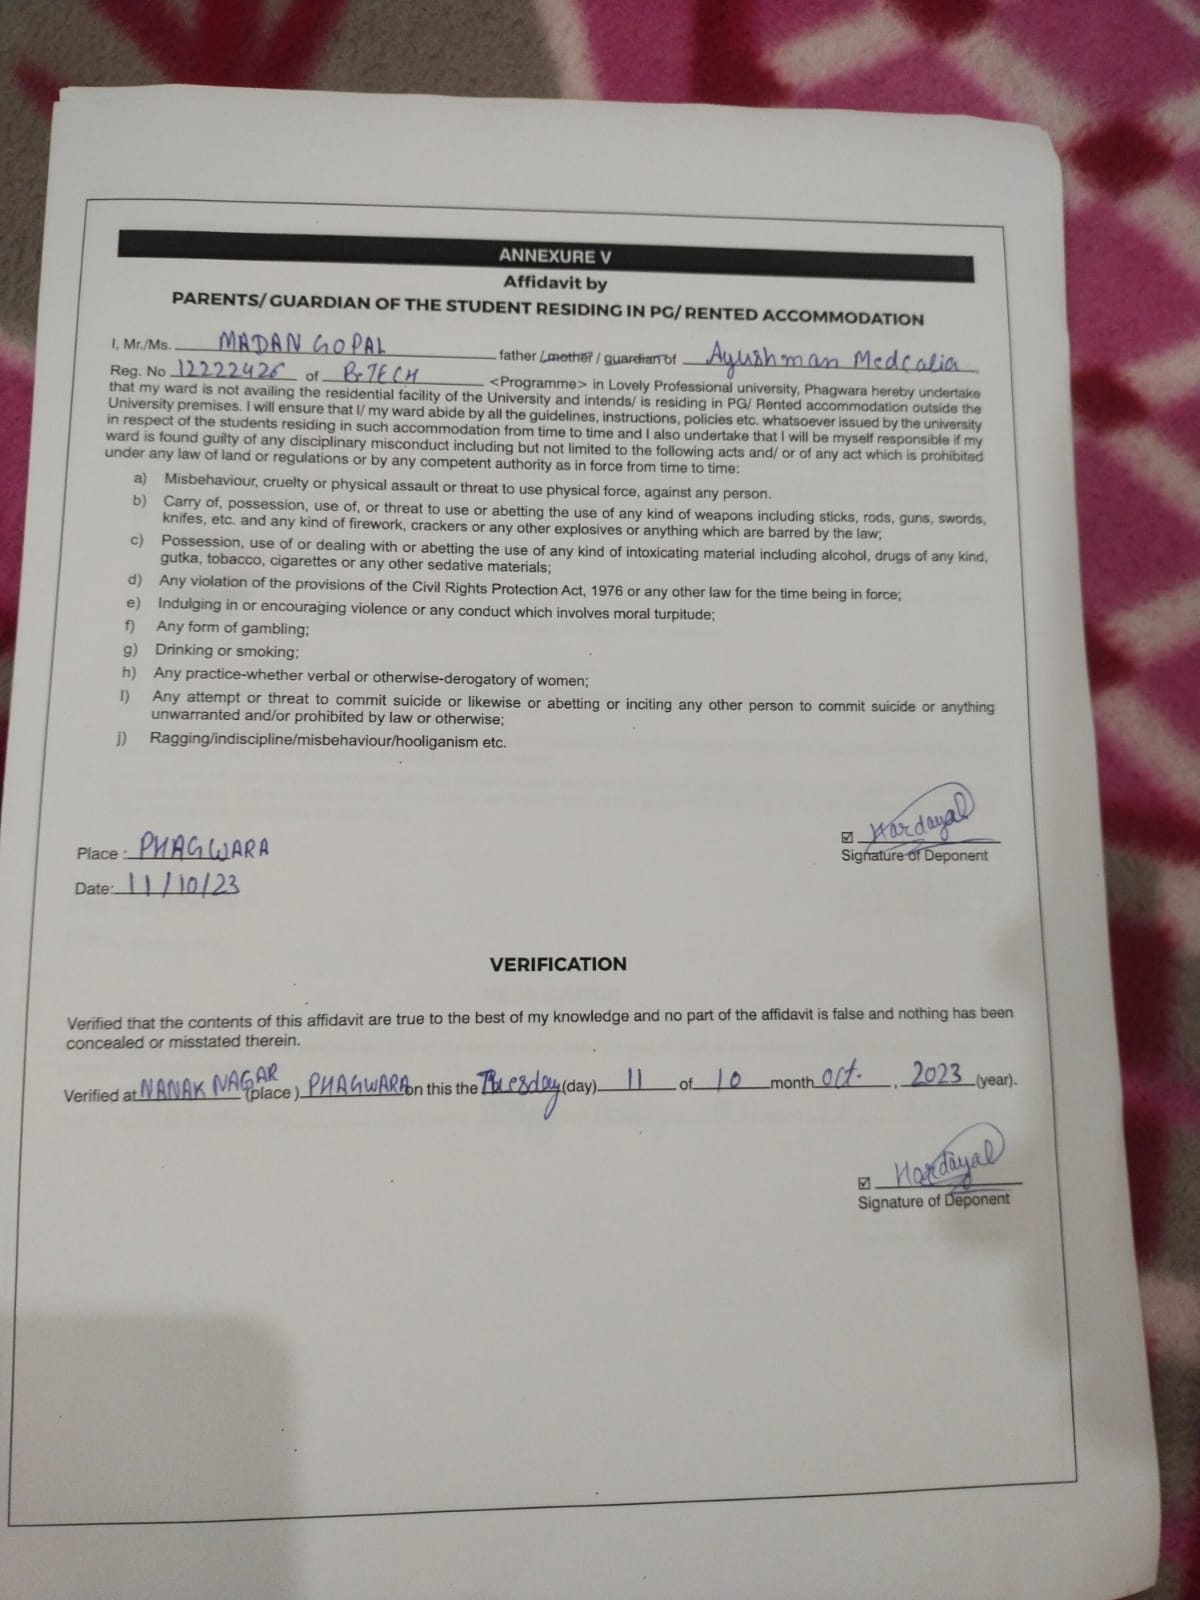 ANNEXURE V
Affidavit by
PARENTS/ GUARDIAN OF THE STUDENT RESIDING IN PG/ RENTED ACCOMMODATION
I, Mr./Ms. MADAN GOPAL father /mother / guardian of Ayushman Medcalia,
Reg. No 12222426 of B-TECH <Programme> in Lovely Professional university, Phagwara hereby undertake
that my ward is not availing the residential facility of the University and intends/ is residing in PG/ Rented accommodation outside the
University premises. I will ensure that I/ my ward abide by all the guidelines, instructions, policies etc. whatsoever issued by the university
in respect of the students residing in such accommodation from time to time and I also undertake that I will be myself responsible if my
ward is found guilty of any disciplinary misconduct including but not limited to the following acts and/ or of any act which is prohibited
under any law of land or regulations or by any competent authority as in force from time to time:
a) Misbehaviour, cruelty or physical assault or threat to use physical force, against any person.
b) Carry of, possession, use of, or threat to use or abetting the use of any kind of weapons including sticks, rods, guns, swords,
knifes, etc. and any kind of firework, crackers or any other explosives or anything which are barred by the law;
c) Possession, use of or dealing with or abetting the use of any kind of intoxicating material including alcohol, drugs of any kind,
gutka, tobacco, cigarettes or any other sedative materials;
d) Any violation of the provisions of the Civil Rights Protection Act, 1976 or any other law for the time being in force;
e) Indulging in or encouraging violence or any conduct which involves moral turpitude;
f) Any form of gambling;
g) Drinking or smoking;
h) Any practice-whether verbal or otherwise-derogatory of women;
I) Any attempt or threat to commit suicide or likewise or abetting or inciting any other person to commit suicide or anything
unwarranted and/or prohibited by law or otherwise;
j) Ragging/indiscipline/misbehaviour/hooliganism etc.
Hardayal
Place : PHAGWARA
Signature of Deponent
Date: 11/10/23
VERIFICATION
Verified that the contents of this affidavit are true to the best of my knowledge and no part of the affidavit is false and nothing has been
concealed or misstated therein.
Verified at NANAK NAGAR (place) PHAGWARA on this the Tuesday (day) 11 of 10 month Oct. , 2023 (year).
Hardayal
Signature of Deponent